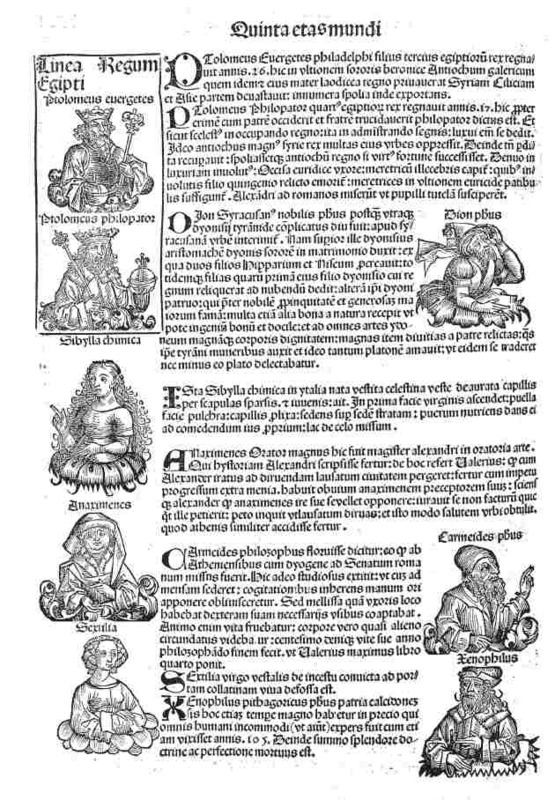 Quinta etas mundi
Linea Regum
Egipti
Ptolomeus euergetes
Ptolomeus philopator
PTolomeus Euergetes philadelphi filius tercius egiptioꝝ rex regna-
uit annis .26. hic in vltionem sororis beronice Antiochum galericum
quem idem et eius mater laodicea regno priuauerat Syriam Ciliciam
et Asie partem deuastauit: innumera spolia inde exportans.
PTolomeus Philopator quartꝰ egiptioꝝ rex regnauit annis .17. hic ꝓpter
crimē cum patrē occiderit et fratrē trucidauerit philopator dictus est. Et
sicut scelestꝰ in occupando regno: ita in admistrando segnis: luxui em̄ se dedit.
Ideo antiochus magnꝰ syrie rex multas eius vrbes oppressit. Deinde tn̄
recuꝑauit: spoliassetqꝫ antiochū regno si virtꝰ fortune successisset. Denuo in
luxuriam inuolutꝰ: Occisa euridice vxore: meretricū illecebris captꝰ: quibꝰ in-
uolutus filio quingenio relicto emorit̄: meretrices in vltionem euricide patibu
lis suffigunt᷑. Alexādri ad romanos miserūt vt pupilli tutelā susciperēt.
DIon Syracusanꝰ nobilis ph̄us postqꝫ vtraqꝫ
dyonisij tyrānide cōplicatus diu fuit: apud sy-
racusanā vrbē interimit᷑. Nam supior ille dyonisius
aristomachē dionis sororē in matrimonio duxit: ex
qua duos filios Hipparium et Niseum ꝓcreauit: to
tidemqꝫ filias quaꝝ primā eius filio dyonisio cui re
gnum reliquerat ad nubendū dedit: alterā ip̄i dyoni
patruo: qui p̄ter nobilē ꝓpinquitatē et generosaꝫ ma
iorum famā: multa etiā alia bona a natura recepit vt
pote ingeniū bonū et docile: et ad omnes artes ydo-
neum magnāqꝫ corporis dignitatem: magnas item diuitias a patre relictas: qͣs
ip̄e tyrāni muneribus auxit et ideo tantum platonē amauit: vt eidem se traderet
nec minus eo plato delectabatur.
Dion ph̄us
Sibylla chimica
ISta Sibylla chimica in ytalia nata vestita celestina veste deaurata capillis
per scapulas sparsis. et iuuenis: ait. In prima facie virginis ascendet: puella
facie pulchra: capillis ꝓlixa: sedens sup̱ sedē stratam: puerum nutriens dans ei
ad comedendum ius ꝓprium: lac de celo missum.
Anaximenes
ANaximenes Orator magnus hic fuit magister alexandri in oratoria arte.
Qui hystoriam Alexandri scripsisse fertur: de hoc refert Ualerius: qꝫ cum
Alexander iratus ad diruendam lausatum ciuitatem pergeret: fertur cum impetu
progressum extra menia. habuit obuium anaximenem preceptorem suum: sciens
qꝫ alexander qꝫ anaximenes ire sue se vellet opponere: iurauit se non facturū quic
qͣt ille petierit: peto inquit vt lausatum diruas: et isto modo salutem vrbi obtulit.
quod athenis similiter accidisse fertur.
Carneides ph̄us
CArneides philozophus floruisse dicitur: eo qꝫ ab
Atheniensibus cum dyogene ad Senatum roma
num missus fuerit. Hic adeo studiosus extitit: vt cuꝫ ad
mensam sederet: cogitationibus inherens manum ori
apponere obliuisceretur. Sed mellissa quā vxoris loco
habebat dexteram suam necessarijs vsibus coaptabat.
Animo enim vita fruebatur: corpore vero quasi alieno
circundatus videbatur. centesimo deniqꝫ vite sue anno
philozophādo finem fecit. vt Ualerius maximus libro
quarto ponit.
Sextilia
SExtilia virgo vestalis de incestu conuicta ad por-
tam collatinam viua defossa est.
Xenophilus
XEnophilus pithagoricus ph̄us patria calcidonen
sis hoc etiaꝫ tempe magno habetur in precio qui
omnis humani incommodi (vt aiūt) expers fuit cum eti
am vixisset annis .105. Deinde summo splendore do-
ctrine ac perfectione mortuus est.